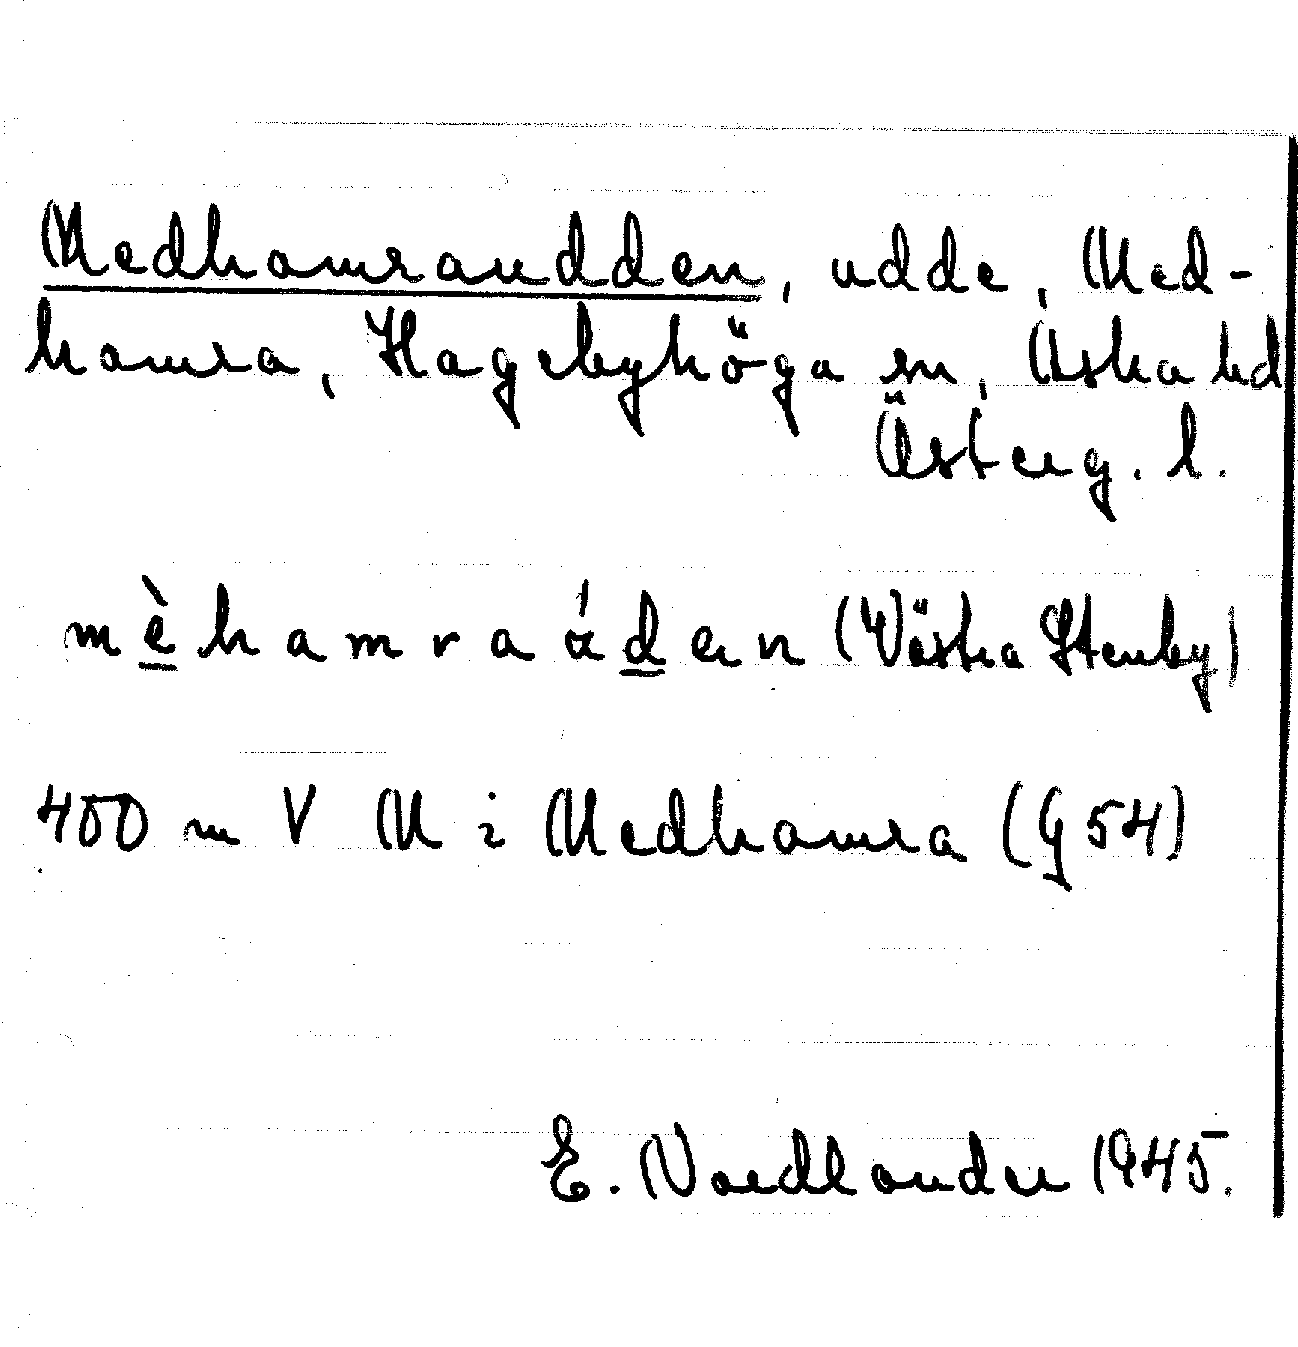 Medhamraudden, udde, Med-
hamra, Hagebyhöga sn, Aska hd
Österg. l.
mèhamraúden (Västra Stenby)
400 m V M i Medhamra (G 54)
E. Nordlander 1945.